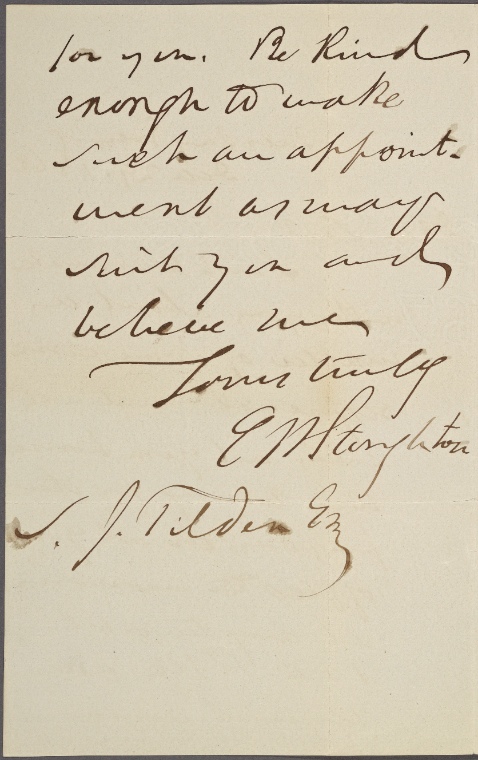 for you. Be Kind
enough to make
such an appoint-
ment as may
suit you and
believe me
Yours truly
E W Stoughton
S. J. Tilden Esq